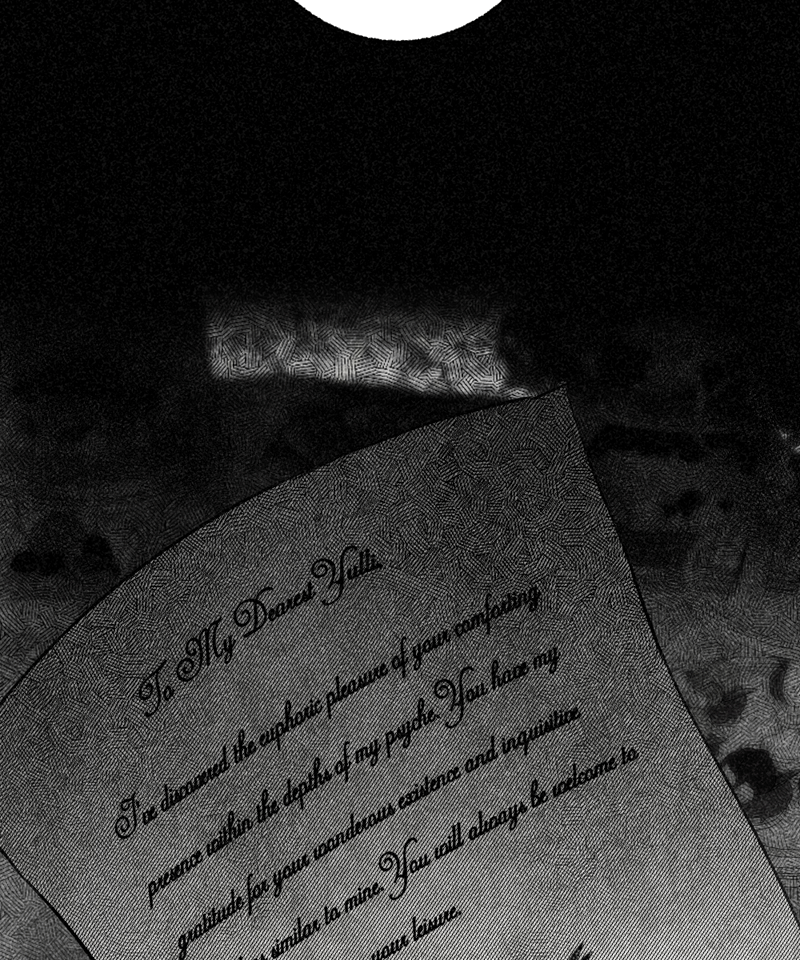 To My Dearest Yulli.
I've discovered the euphoric pleasure of your comforting
presence within the depths of my psyche. You have my
gratitude for your wonderous existence and inquisitive
similar to mine. You will always be welcome to
your leisure.